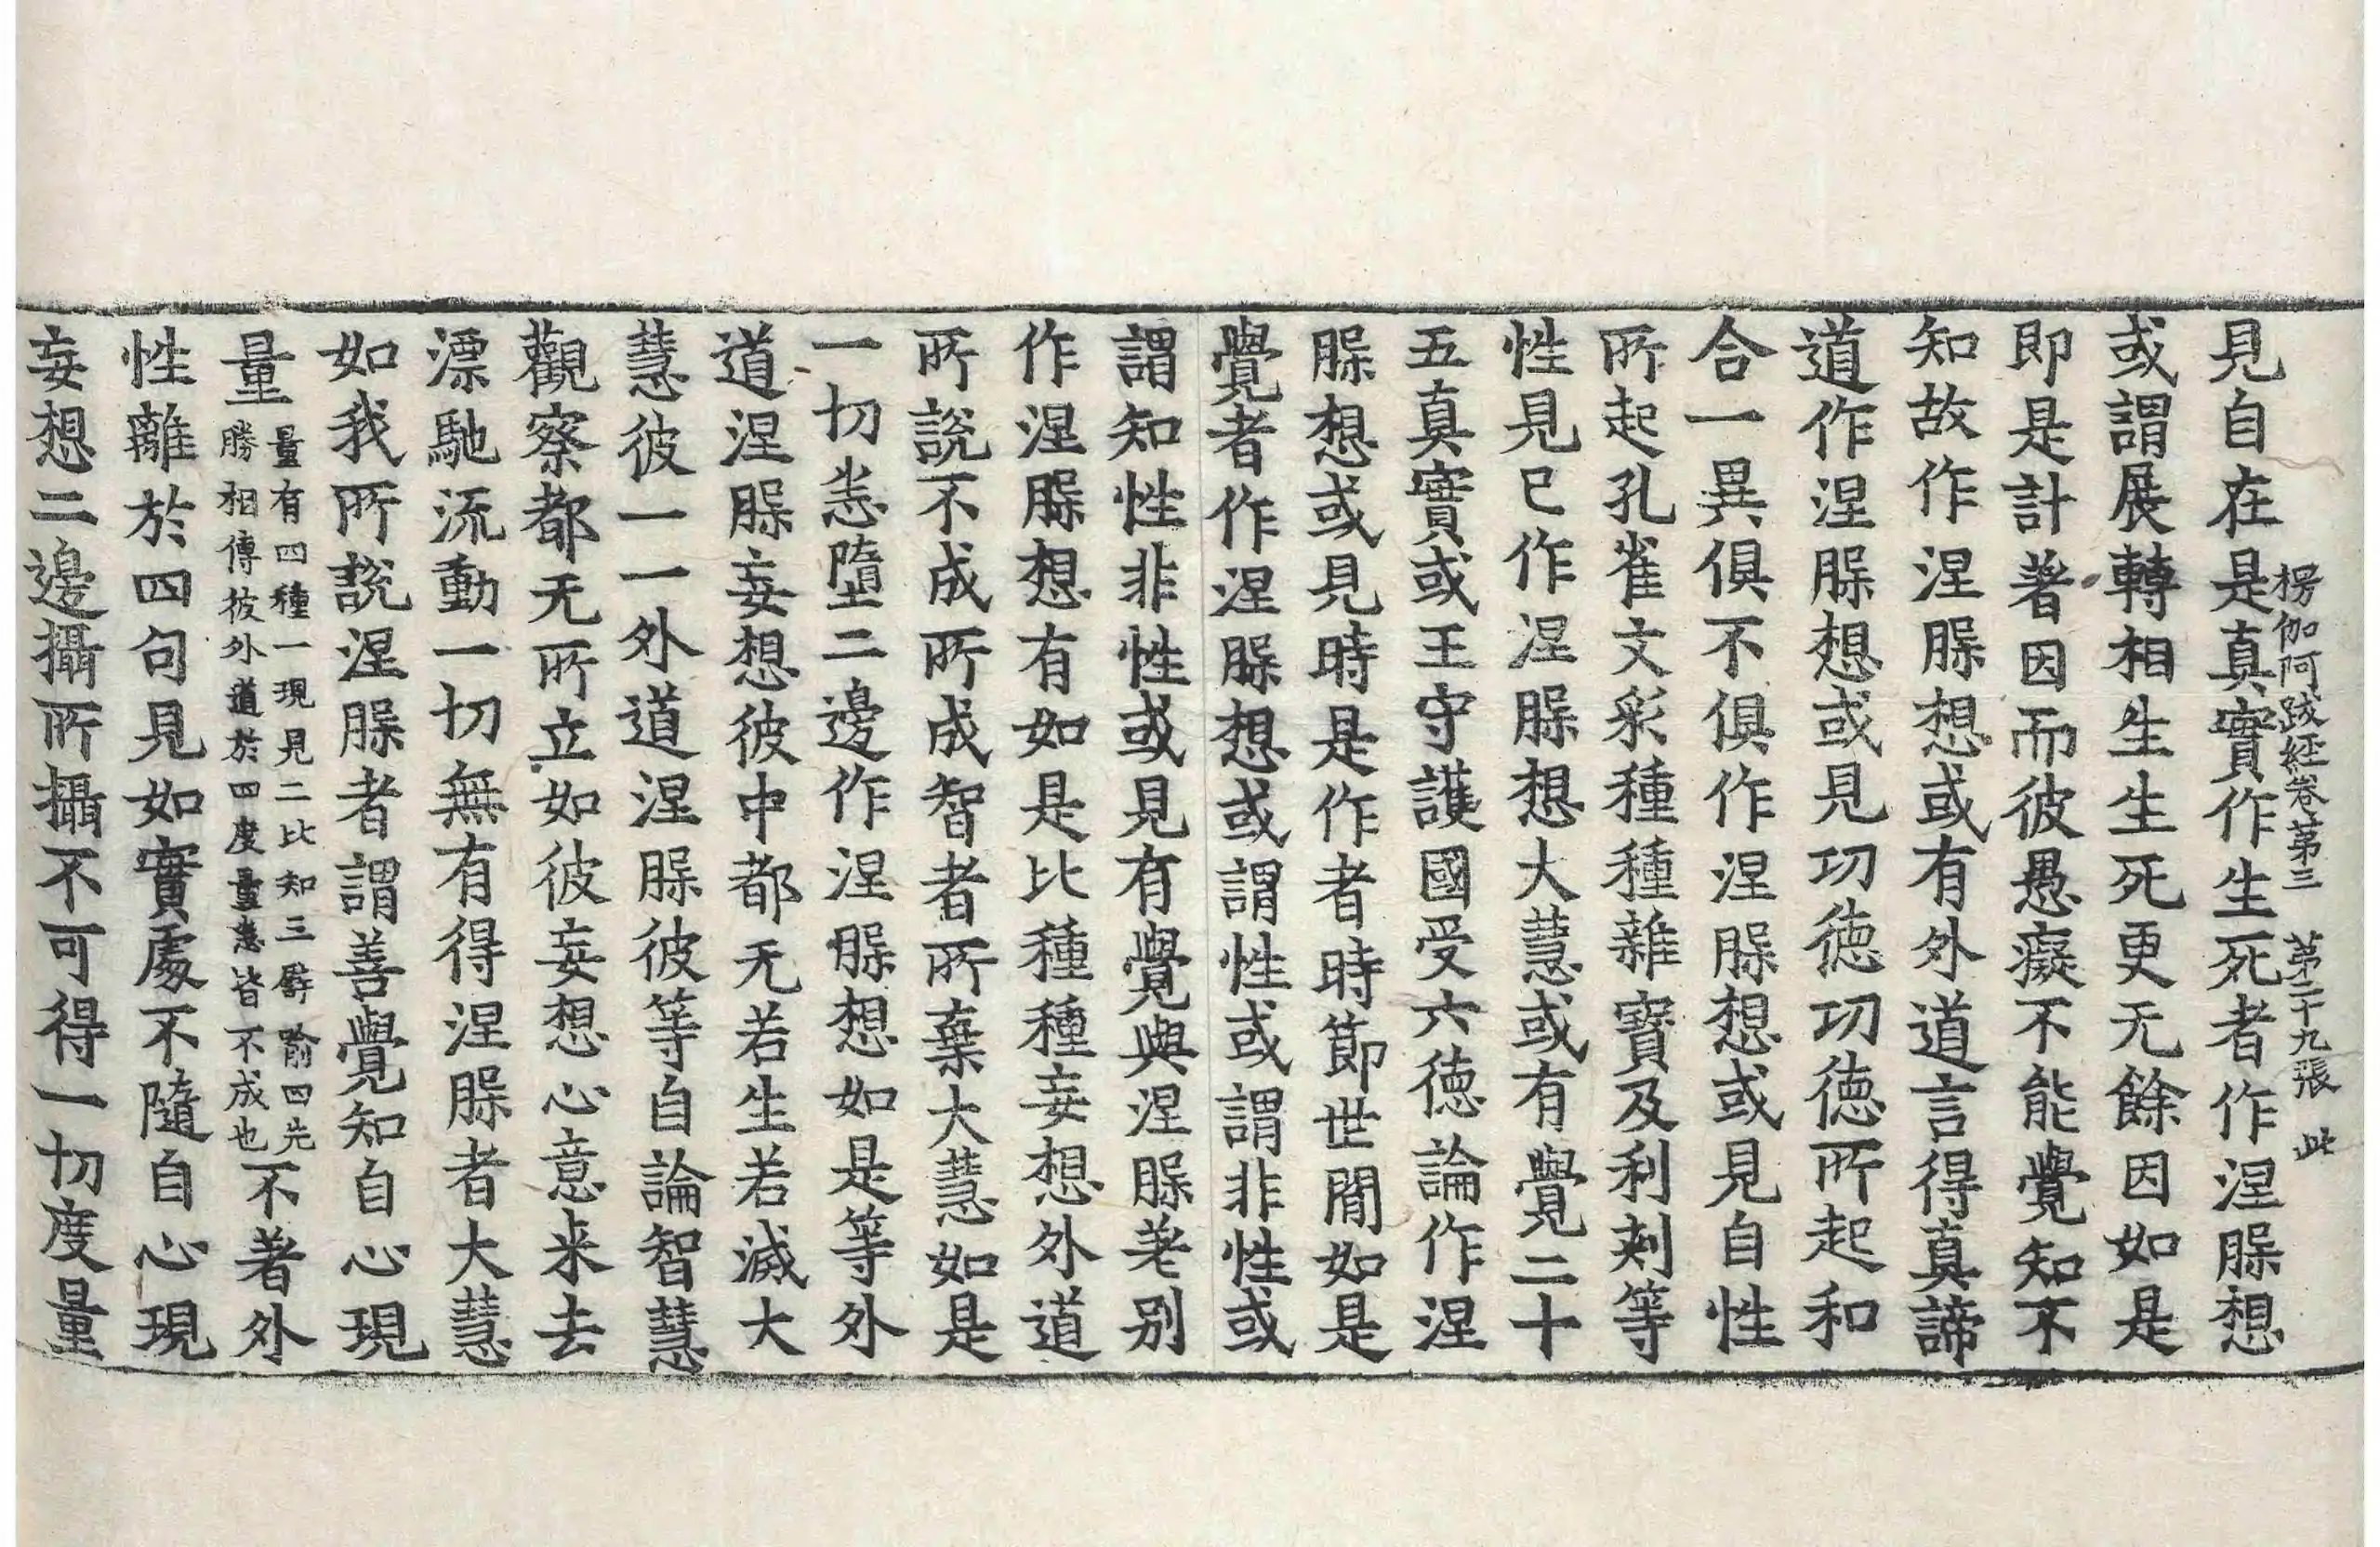 楞伽阿跋経卷第三 第二十九張 此
見自在是真實作生死者作涅槃想
或謂展轉相生生死更无餘因如是
即是計著因而彼愚癡不能覺知不
知故作涅槃想或有外道言得真諦
道作涅槃想或見功徳功徳所起和
合一異俱不俱作涅槃想或見自性
所起孔雀文彩種種雜寶及利刾等
性見已作涅槃想大慧或有覺二十
五真實或王守護國受六徳論作涅
槃想或見時是作者時節世間如是
覺者作涅槃想或謂性或謂非性或
謂知性非性或見有覺與涅槃差别
作涅槃想有如是比種種妄想外道
所說不成所成智者所棄大慧如是
一切悉墮二邊作涅槃想如是等外
道涅槃妄想彼中都无若生若滅大
慧彼一一外道涅槃彼等自論智慧
觀察都无所立如彼妄想心意来去
漂馳流動一切無有得涅槃者大慧
如我所說涅槃者謂善覺知自心現
量量有四種一現見二比知三譬喻四先勝相傳彼外道於四度量悉皆不成也不著外
性離於四句見如實處不隨自心現
妄想二邊攝所攝不可得一切度量